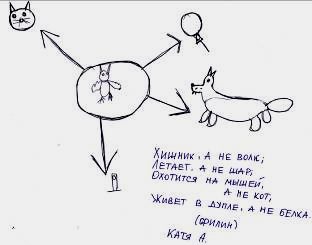 Хищник, а не волк;
Летает, а не шар;
Охотится на мышей,
а не кот;
Живет в дупле, а не белка.
(филин)
Катя А.